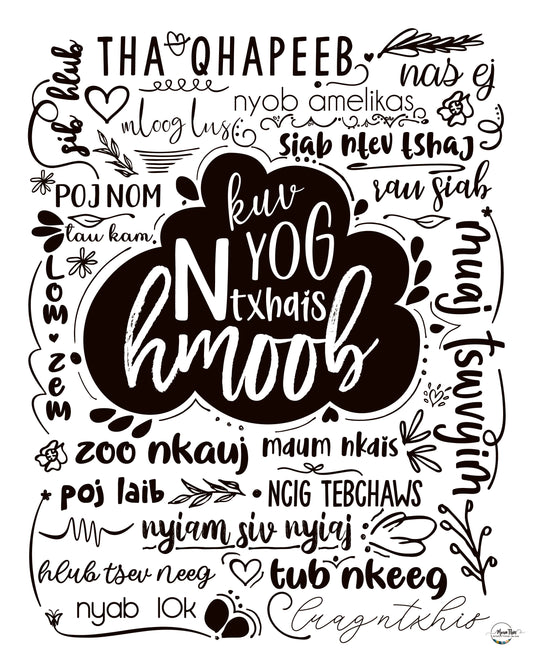 THA QHAPEEB
sib hlub
nas ej
nyob amelikas
mloog lus
siab ntev tshaj
POJ NOM
rau siab
tau kam
kuv
NYOG
txhais
hmoob
muaj tswvyim
LOM ZEM
zoo nkauj
maum nkais
poj laib
NCIG TEBCHAWS
nyiam siv nyiaj
hlub tsev neeg
tub nkeeg
nyab 10K
luag ntxhis